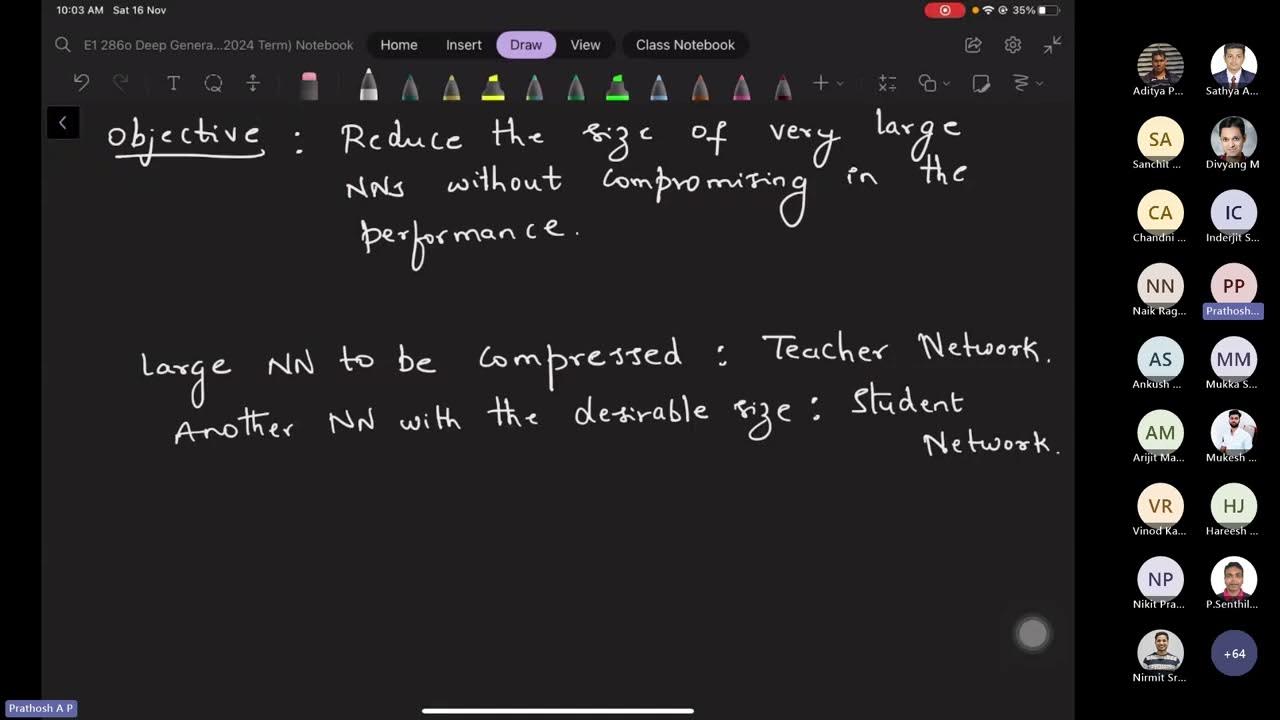 10:03 AM Sat 16 Nov
35%
E1 286o Deep Genera...2024 Term) Notebook
Home Insert Draw View Class Notebook
Objective : Reduce the size of very large
NNs without compromising in the
performance.
Large NN to be compressed : Teacher Network.
Another NN with the desirable size : Student
Network.
Aditya P... Sathya A...
SA
Sanchit ... Divyang M
CA IC
Chandni ... Inderjit S...
NN PP
Naik Rag... Prathosh...
AS MM
Ankush ... Mukka S...
AM
Arijit Ma... Mukesh ...
VR HJ
Vinod Ka... Hareesh ...
NP
Nikit Pra... P.Senthil...
+64
Nirmit Sr...
Prathosh A P